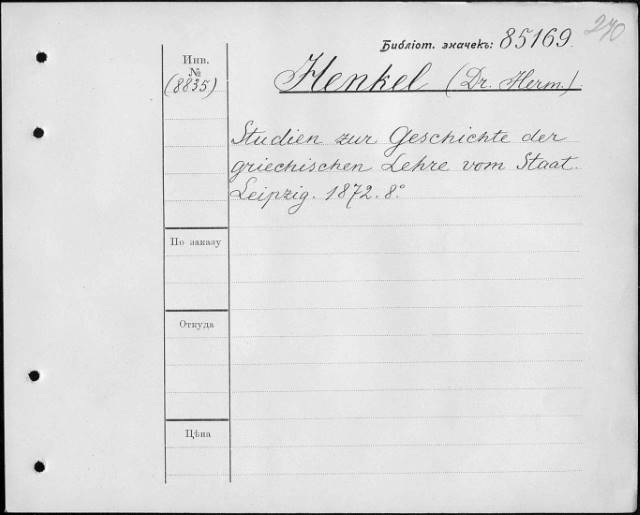 270
Библіот. значекъ: 85169.
Инв.
№
(8835)
Henkel (Dr. Herm.)
Studien zur Geschichte der
griechischen Lehre vom Staat.
Leipzig. 1872. 8°
По заказу
Откуда
Цѣна